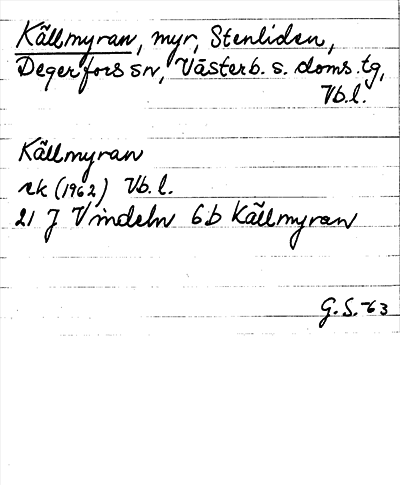 Källmyran, myr, Stenliden,
Degerfors sn, Västerb. s. doms. tg,
Vb.l.
Källmyran
rk (1962) Vb.l.
21 J Vindeln 6b Källmyran
G.S.-63